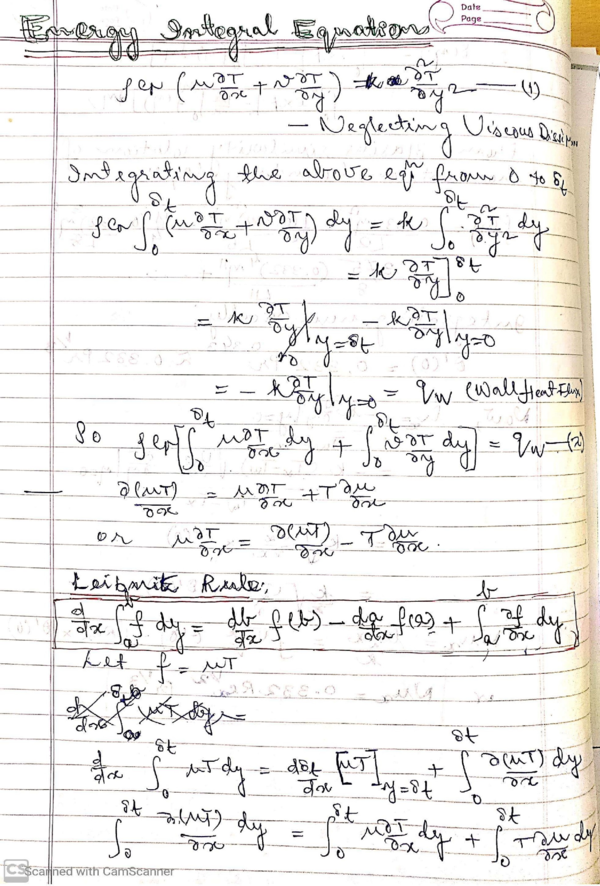 Date
Page
Energy Integral Equations
ρcp (u ∂T/∂x + v ∂T/∂y) = k ∂²T/∂y² — (1)
— Neglecting Viscous Dissipn
Integrating the above eqⁿ from 0 to δt
ρcp ∫₀^δt (u ∂T/∂x + v ∂T/∂y) dy = k ∫₀^δt ∂²T/∂y² dy
= k ∂T/∂y ]₀^δt
= k ∂T/∂y |y=δt − k ∂T/∂y |y=0
0
= − k ∂T/∂y |y=0 = qw (Wall Heat Flux)
So ρcp [∫₀^δt u ∂T/∂x dy + ∫₀^δt v ∂T/∂y dy] = qw — (2)
— ∂(uT)/∂x = u ∂T/∂x + T ∂u/∂x
or u ∂T/∂x = ∂(uT)/∂x − T ∂u/∂x.
Leibnitz Rule:
d/dx ∫ₐᵇ f dy = db/dx f(b) − da/dx f(a) + ∫ₐᵇ ∂f/∂x dy
Let f = uT
d/dx ∫ uT dy =
d/dx ∫₀^δt uT dy = dδt/dx [uT]y=δt + ∫₀^δt ∂(uT)/∂x dy
∫₀^δt ∂(uT)/∂x dy = ∫₀^δt u ∂T/∂x dy + ∫₀^δt T ∂u/∂x dy
CS Scanned with CamScanner